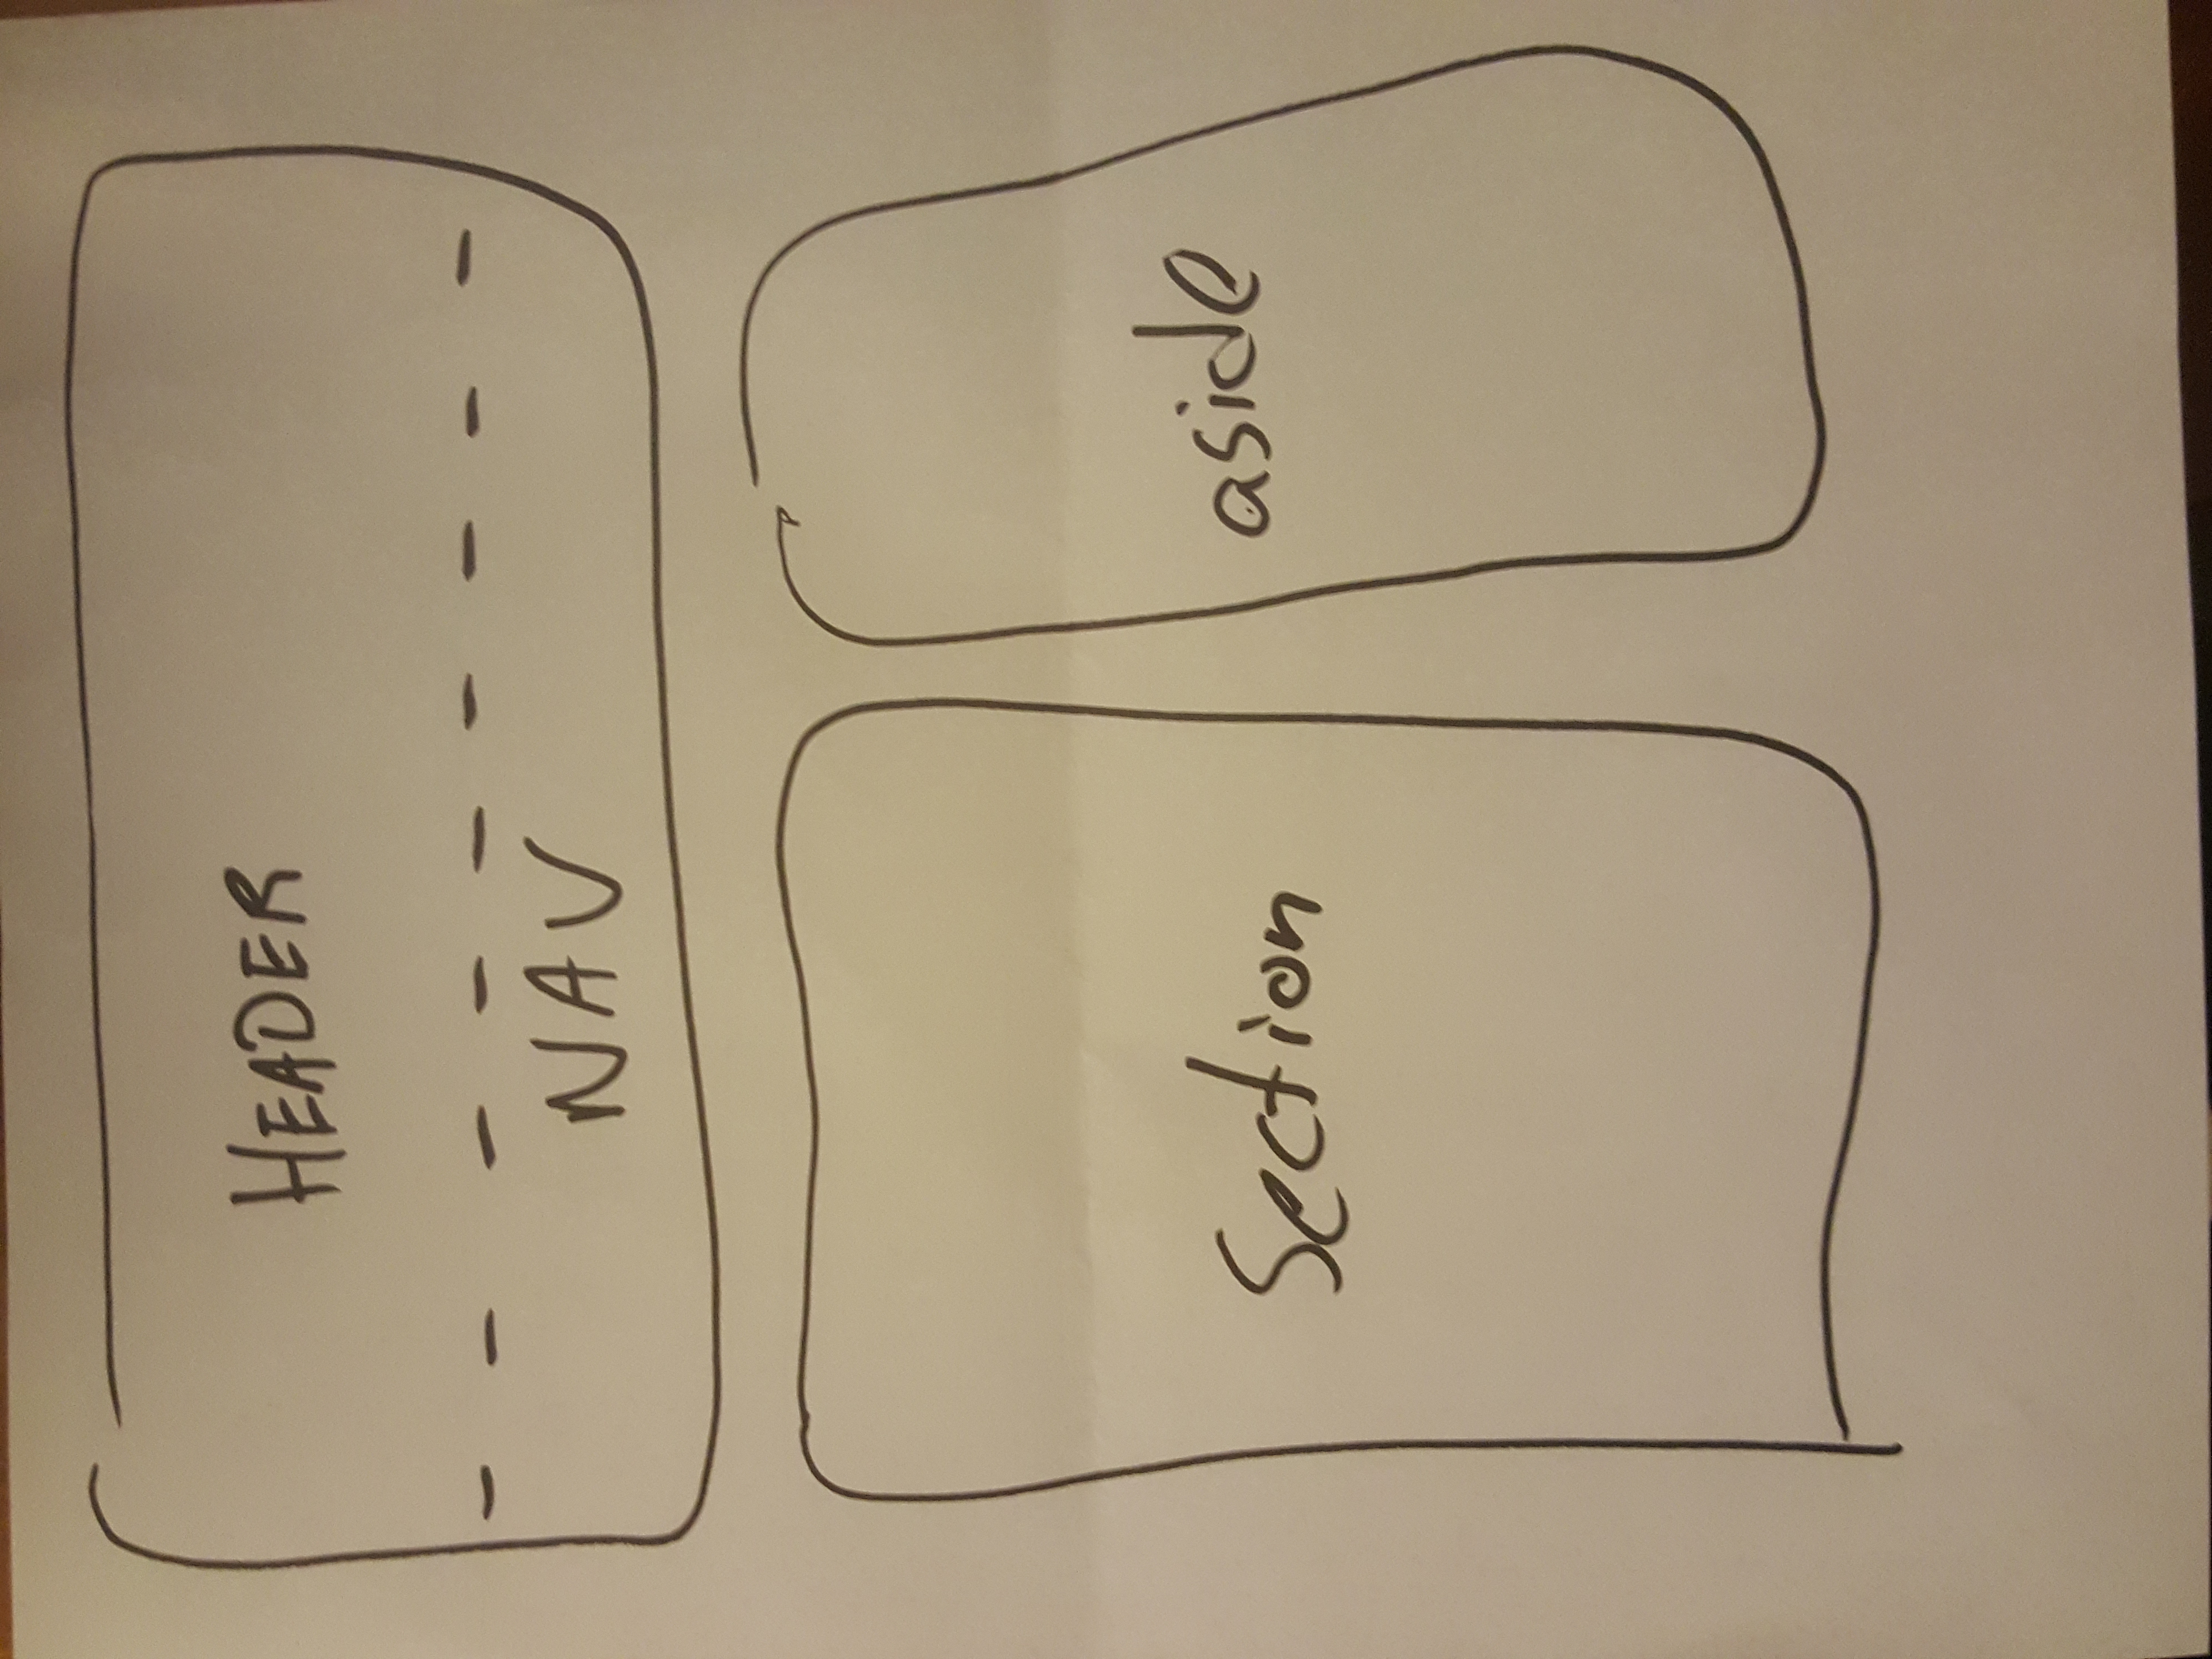 HEADER
NAV
Section
aside